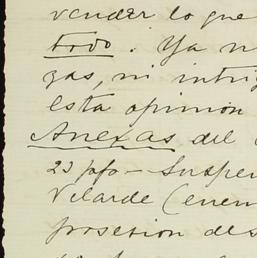 vender lo que
todo. Ya n
gas, ni intrig
esta opinion
Anexas del
23 pafo - Suspen
Velarde (enem
posesion des